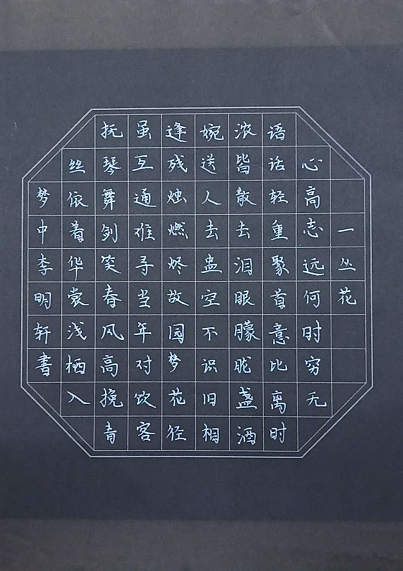 一丛花
心高志远何时穷无
语话轻重聚首意比离时
浓皆散去泪眼朦胧盏酒
婉送人去盅空不识旧相
逢残烛燃烬故国梦花径
虽互通难寻当年对饮客
抚琴舞剑笑春风高挽青
丝依着华裳浅栖入
梦中李明轩书